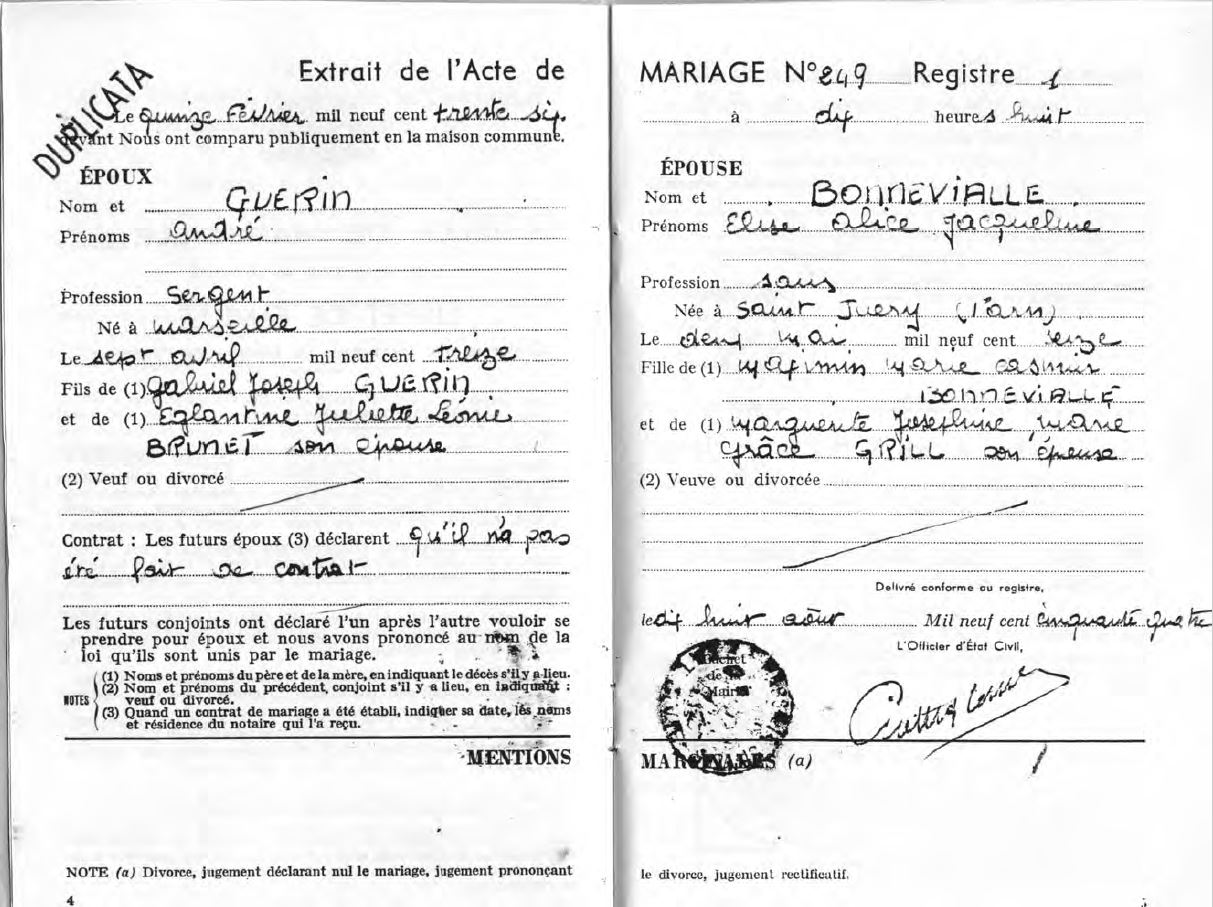 DUPLICATA
Extrait de l'Acte de
Le quinze Février mil neuf cent trente six.
devant Nous ont comparu publiquement en la maison commune.
ÉPOUX
Nom et GUERIN
Prénoms André
Profession Sergent
Né à Marseille
Le sept avril mil neuf cent treize
Fils de (1) Gabriel Joseph GUERIN
et de (1) Eglantine Juliette Léonie
BRUNET son épouse
(2) Veuf ou divorcé
Contrat : Les futurs époux (3) déclarent qu'il n'a pas
été fait de contrat
Les futurs conjoints ont déclaré l'un après l'autre vouloir se
prendre pour époux et nous avons prononcé au nom de la
loi qu'ils sont unis par le mariage.
NOTES
(1) Noms et prénoms du père et de la mère, en indiquant le décès s'il y a lieu.
(2) Nom et prénoms du précédent, conjoint s'il y a lieu, en indiquant :
veuf ou divorcé.
(3) Quand un contrat de mariage a été établi, indiquer sa date, les noms
et résidence du notaire qui l'a reçu.
MENTIONS
NOTE (a) Divorce, jugement déclarant nul le mariage, jugement prononçant
4
MARIAGE N° 249 Registre 1
à dix heures huit
ÉPOUSE
Nom et BONNEVIALLE
Prénoms Elise Alice Jacqueline
Profession sans
Née à Saint Juery (Tarn)
Le deux Mai mil neuf cent seize
Fille de (1) Maximin Marie Casimir
BONNEVIALLE
et de (1) Marguerite Joséphine Marie
Grâce GRILL son épouse
(2) Veuve ou divorcée
Delivré conforme au registre,
le dix huit août Mil neuf cent cinquante quatre
L'Officier d'État Civil,
Cachet
de la
Mairie
MARGINALES (a)
le divorce, jugement rectificatif.